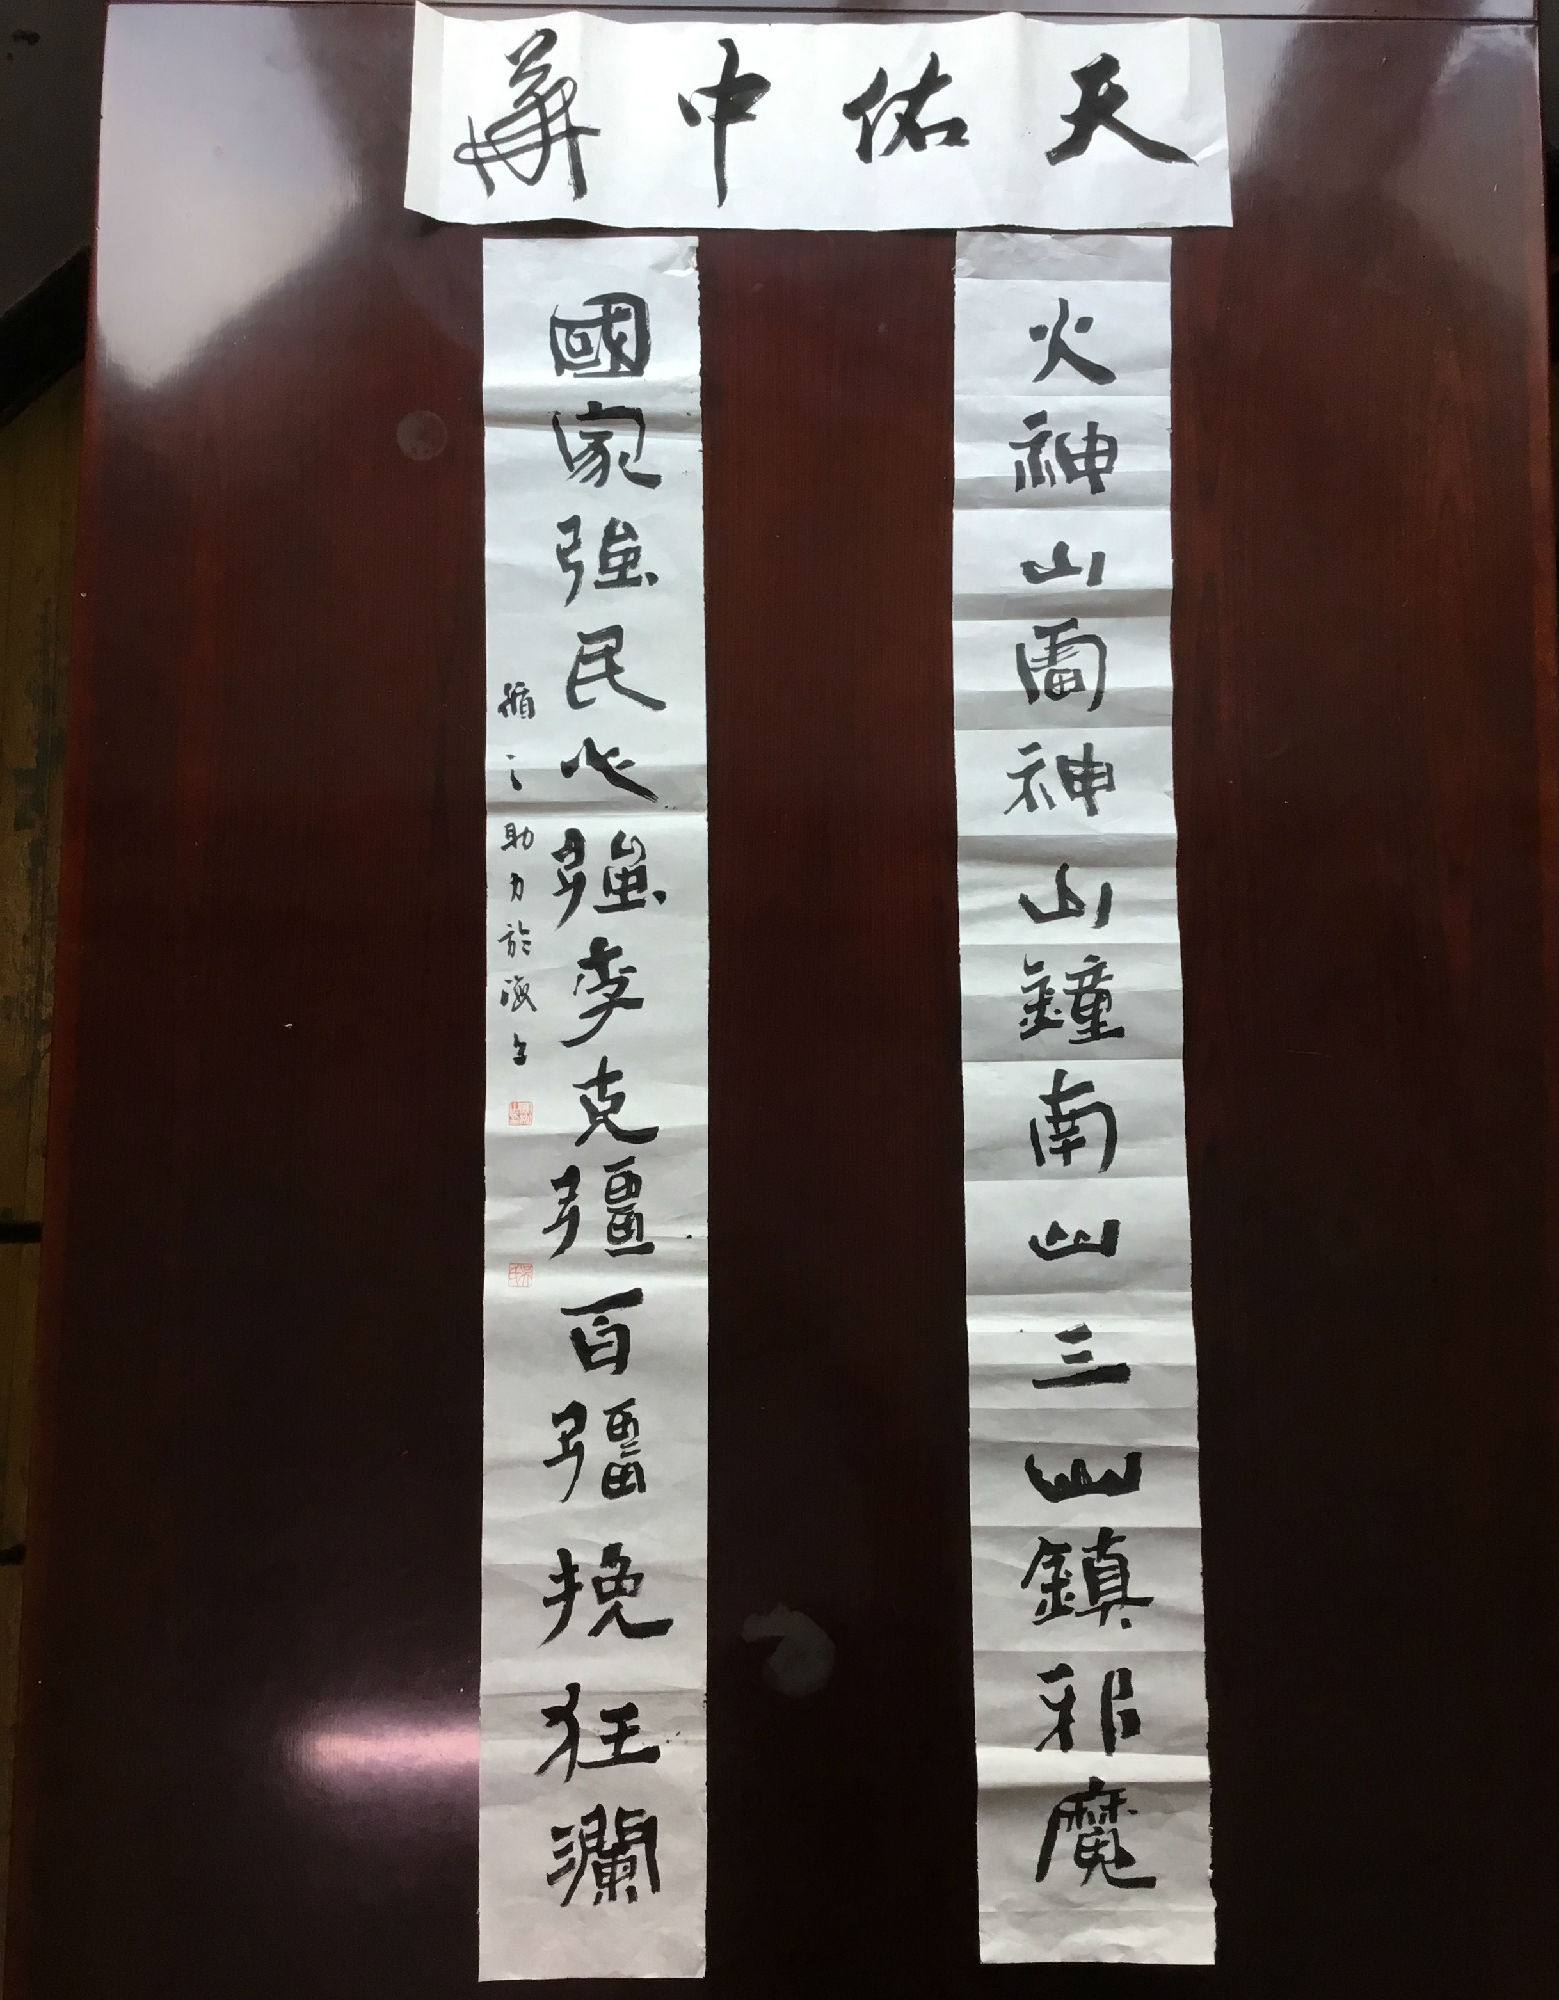 天佑中華
火神山雷神山鐘南山三山鎮邪魔
國家強民心強李克彊百彊挽狂瀾
循之助力於海上